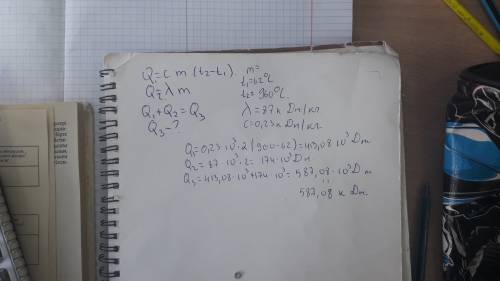 Q₁=c m (t₂-t₁)
Q₂=λ m
Q₁+Q₂=Q₃
Q₃-?
m=
t₁=62°C
t₂=960°C
λ=87 к Дж/кг
c=0,23 к Дж/кг
Q₁=0,23·10³·2(960-62)=413,08·10³Дж
Q₂=87·10³·2=174·10³Дж
Q₃=413,08·10³+174·10³=587,08·10³Дж
587,08 к Дж